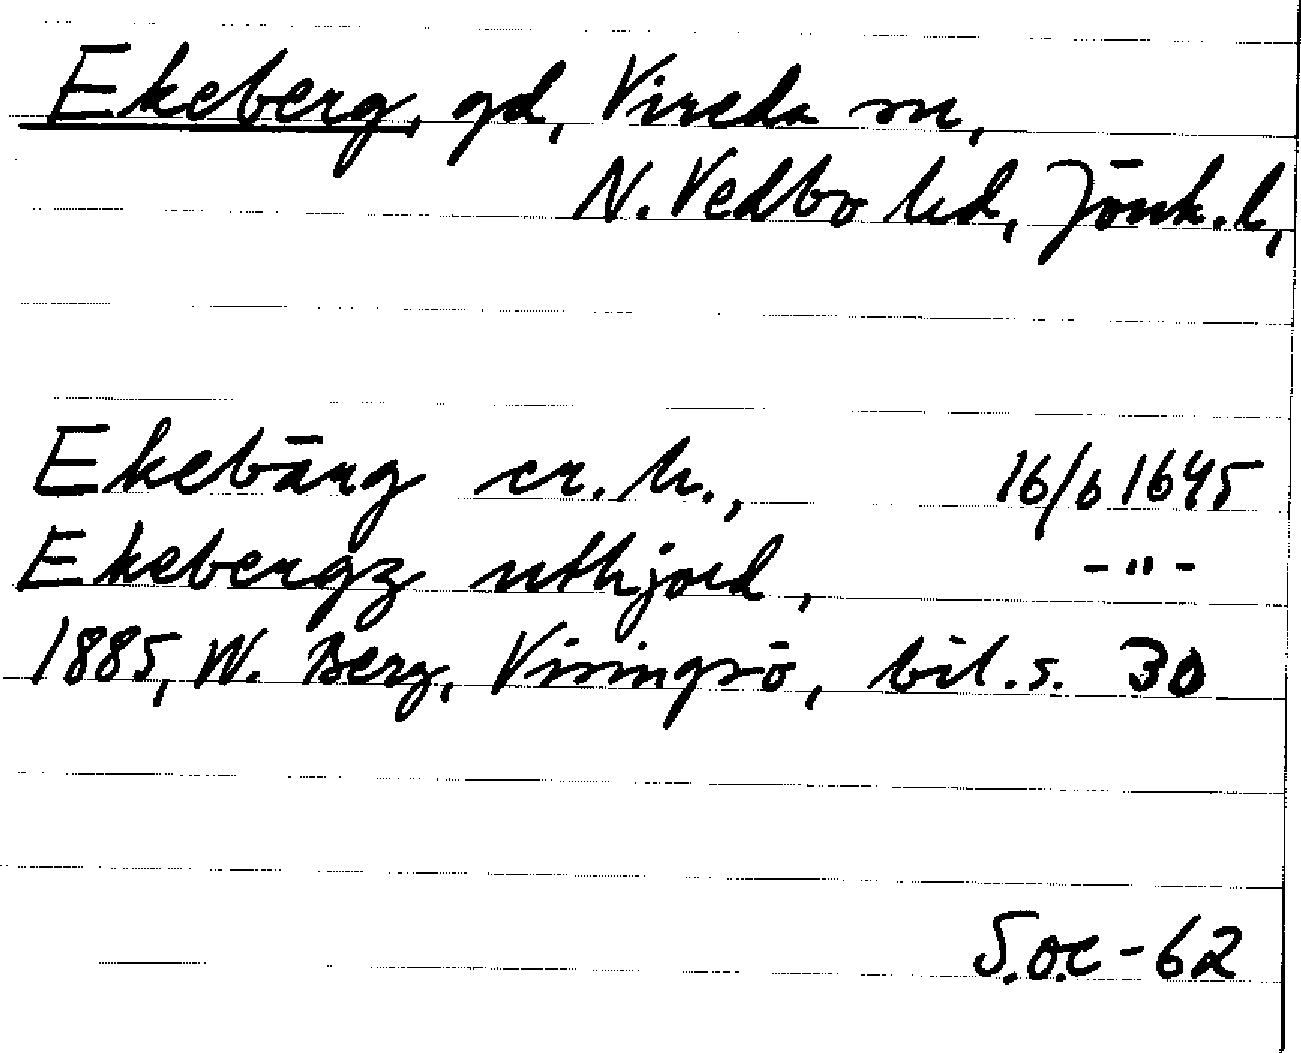 Ekeberg, gd, Vireda sn,
N. Vedbo hd, Jönk. l,
Ekebärg cr. h., 16/6 1645
Ekebergz uthjord, -"-
1885, W. Berg, Visingsö, bil. s. 30
S.O.C - 62